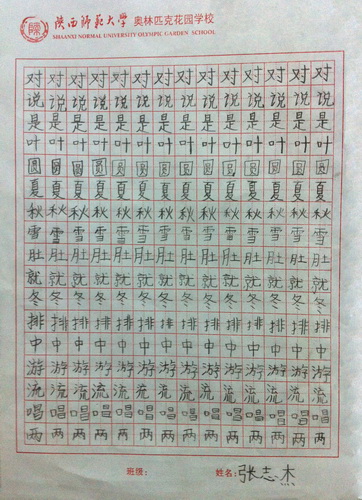 陕西师范大学 奥林匹克花园学校
SHAANXI NORMAL UNIVERSITY OLYMPIC GARDEN SCHOOL
对对对对对对对对对对对对对
说说说说说说说说说说说说说
是是是是是是是是是是是是是
叶叶叶叶叶叶叶叶叶叶叶叶叶
圆圆圆圆圆圆圆圆圆圆圆圆圆
夏夏夏夏夏夏夏夏夏夏夏夏夏
秋秋秋秋秋秋秋秋秋秋秋秋秋
雪雪雪雪雪雪雪雪雪雪雪雪雪
肚肚肚肚肚肚肚肚肚肚肚肚肚
就就就就就就就就就就就就就
冬冬冬冬冬冬冬冬冬冬冬冬冬
排排排排排排排排排排排排排
中中中中中中中中中中中中中
游游游游游游游游游游游游游
流流流流流流流流流流流流流
唱唱唱唱唱唱唱唱唱唱唱唱唱
两两两两两两两两两两两两两
班级: 姓名:张志杰